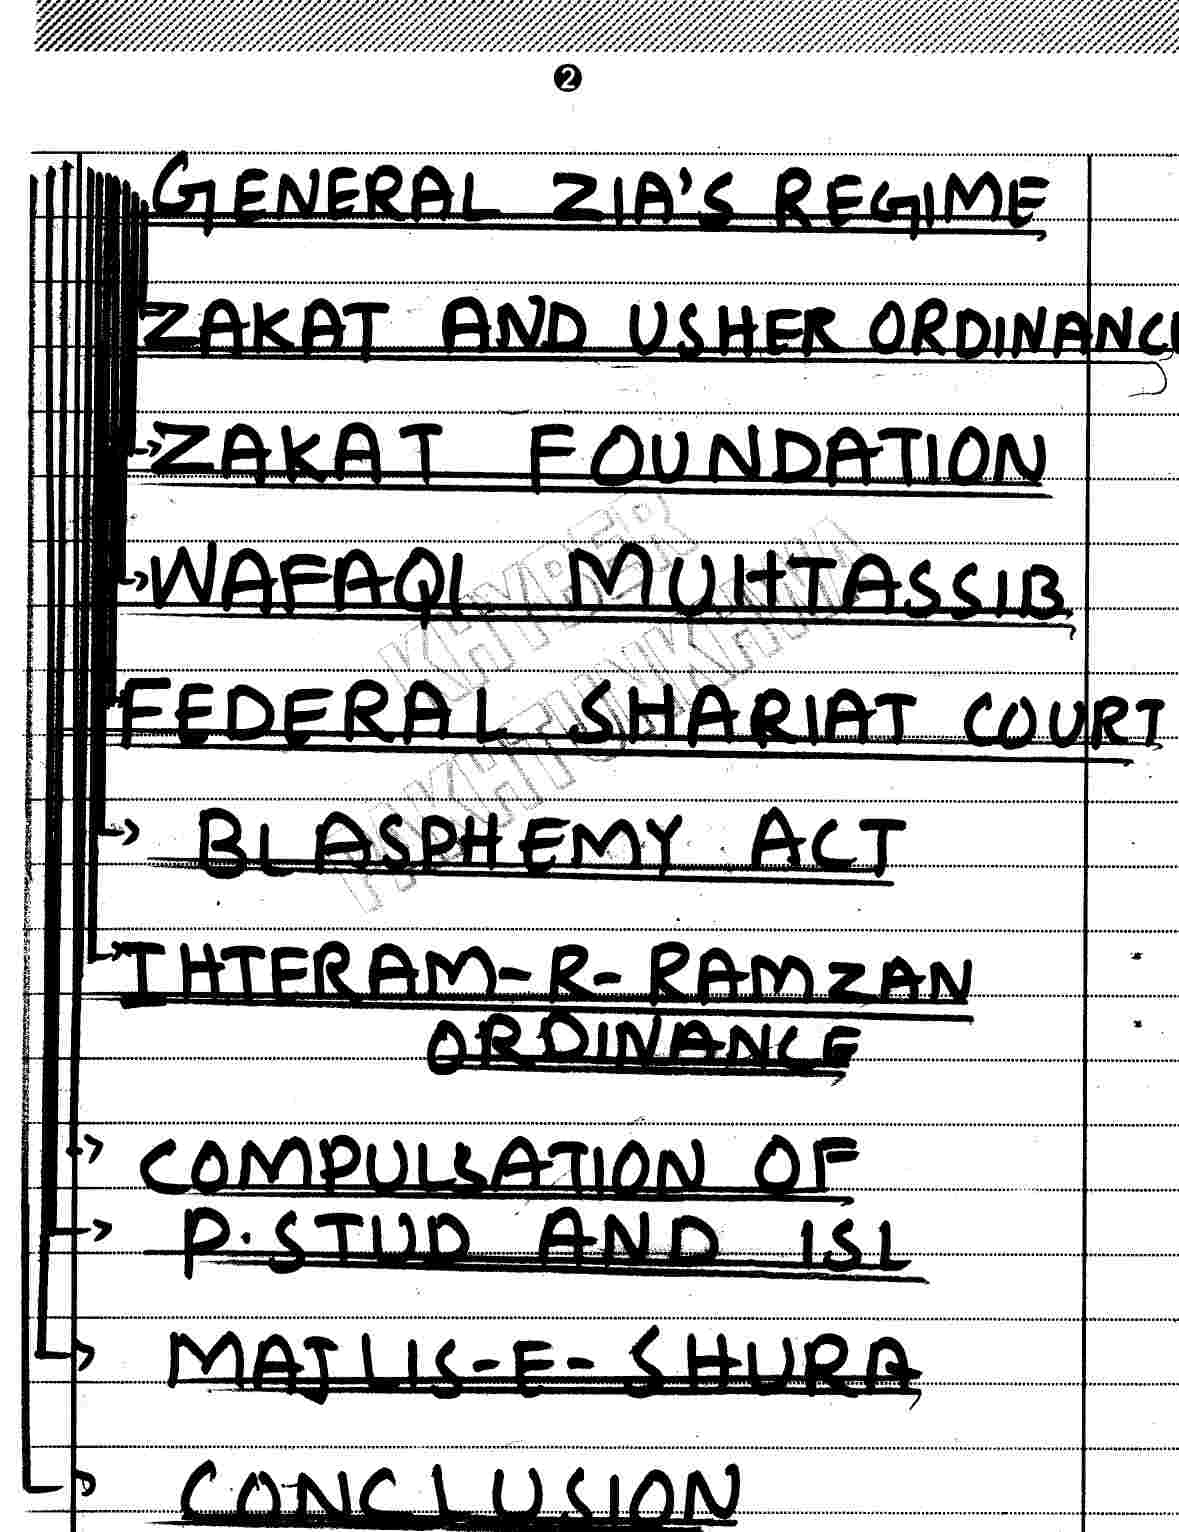 2
GENERAL ZIA'S REGIME
ZAKAT AND USHER ORDINANCE
ZAKAT FOUNDATION
WAFAQI MUHTASSIB
KHYBER
PAKHTUNKHWA
FEDERAL SHARIAT COURT
BLASPHEMY ACT
IHTERAM-R-RAMZAN
ORDINANCE
COMPULSATION OF
P.STUD AND ISL
MAJLIS-E-SHURA
CONCLUSION